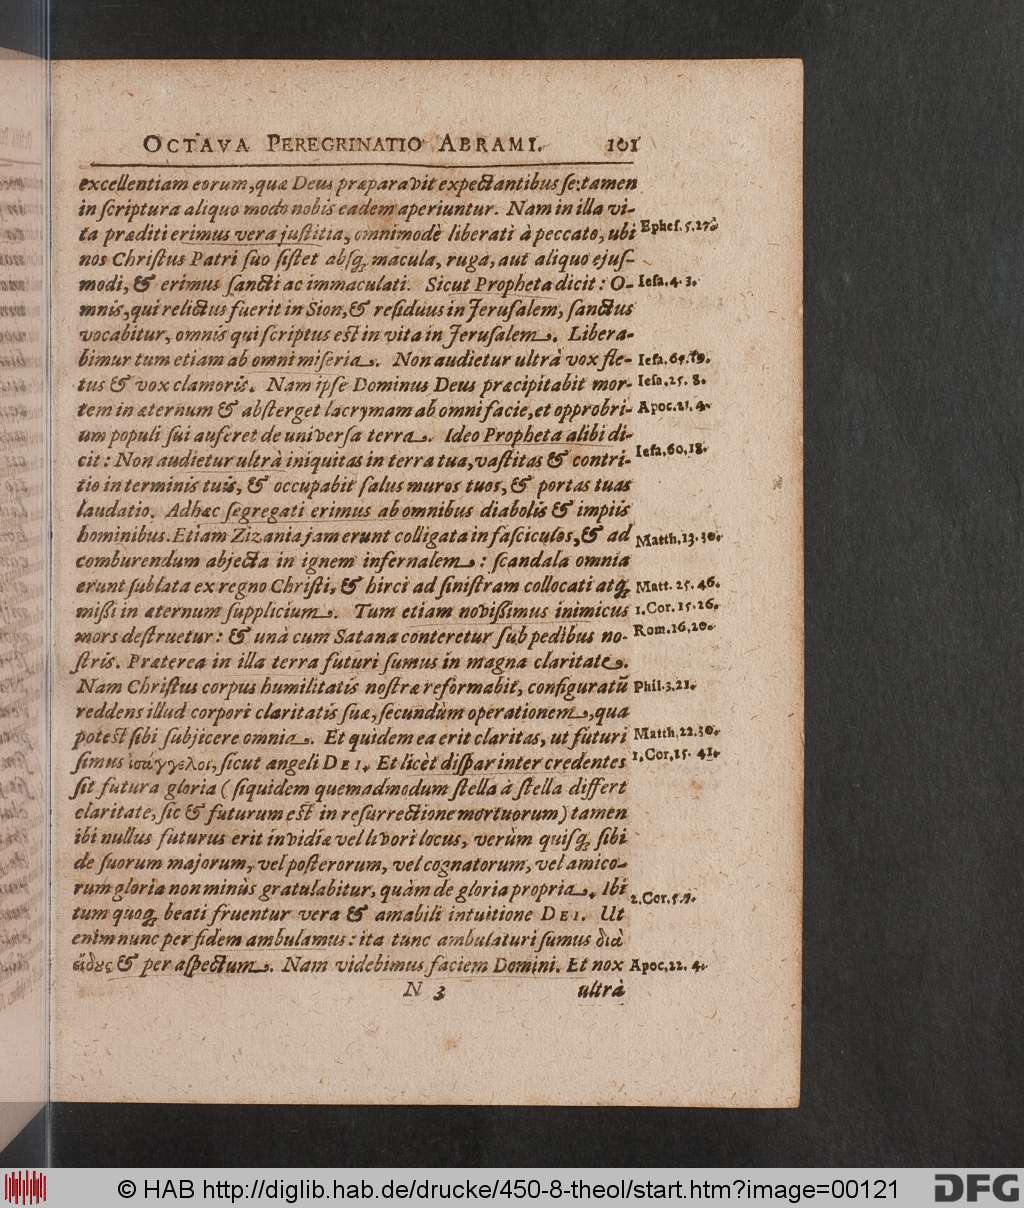 OCTAVA PEREGRINATIO ABRAMI. 101
excellentiam eorum, quæ Deus præparavit expectantibus se: tamen
in scriptura aliquo modo nobis eadem aperiuntur. Nam in illa vi-
ta præditi erimus vera justitia, omnimodè liberati à peccato, ubi
Ephes. 5. 27.
nos Christus Patri suo sistet absq; macula, ruga, aut aliquo ejus-
modi, & erimus sancti ac immaculati. Sicut Propheta dicit: O-
Iesa. 4. 3.
mnis, qui relictus fuerit in Sion, & residuus in Jerusalem, sanctus
vocabitur, omnis qui scriptus est in vita in Jerusalem. Libera-
bimur tum etiam ab omni miseria. Non audietur ultrà vox fle-
Iesa. 65. 19.
tus & vox clamoris. Nam ipse Dominus Deus præcipitabit mor-
Iesa. 25. 8.
tem in æternum & absterget lacrymam ab omni facie, et opprobri-
Apoc. 21. 4.
um populi sui auferet de universa terra. Ideo Propheta alibi di-
cit: Non audietur ultrà iniquitas in terra tua, vastitas & contri-
Iesa. 60. 18.
tio in terminis tuis, & occupabit salus muros tuos, & portas tuas
laudatio. Adhæc segregati erimus ab omnibus diabolis & impiis
hominibus. Etiam Zizania jam erunt colligata in fasciculos, & ad
Matth. 13. 30.
comburendum abjecta in ignem infernalem: scandala omnia
erunt sublata ex regno Christi, & hirci ad sinistram collocati atq;
Matt. 25. 46.
missi in æternum supplicium. Tum etiam novissimus inimicus
1. Cor. 15. 26.
mors destruetur: & unà cum Satana conteretur sub pedibus no-
Rom. 16. 20.
stris. Præterea in illa terra futuri sumus in magna claritate.
Nam Christus corpus humilitatis nostræ reformabit, configuratũ
Phil. 3. 21.
reddens illud corpori claritatis suæ, secundùm operationem, qua
potest sibi subjicere omnia. Et quidem ea erit claritas, ut futuri
Matth. 22. 30.
simus ἰσάγγελοι, sicut angeli DEI. Et licèt dispar inter credentes
1. Cor. 15. 41.
sit futura gloria (siquidem quemadmodum stella à stella differt
claritate, sic & futurum est in resurrectione mortuorum) tamen
ibi nullus futurus erit invidiæ vel livori locus, verùm quisq; sibi
de suorum majorum, vel posterorum, vel cognatorum, vel amico-
rum gloria non minùs gratulabitur, quàm de gloria propria. Ibi
2. Cor. 5. 7.
tum quoq; beati fruentur vera & amabili intuitione DEI. Ut
enim nunc per fidem ambulamus: ita tunc ambulaturi sumus διὰ
εἴδους & per aspectum. Nam videbimus faciem Domini. Et nox
Apoc. 22. 4.
N 3 ultrà
© HAB http://diglib.hab.de/drucke/450-8-theol/start.htm?image=00121
DFG